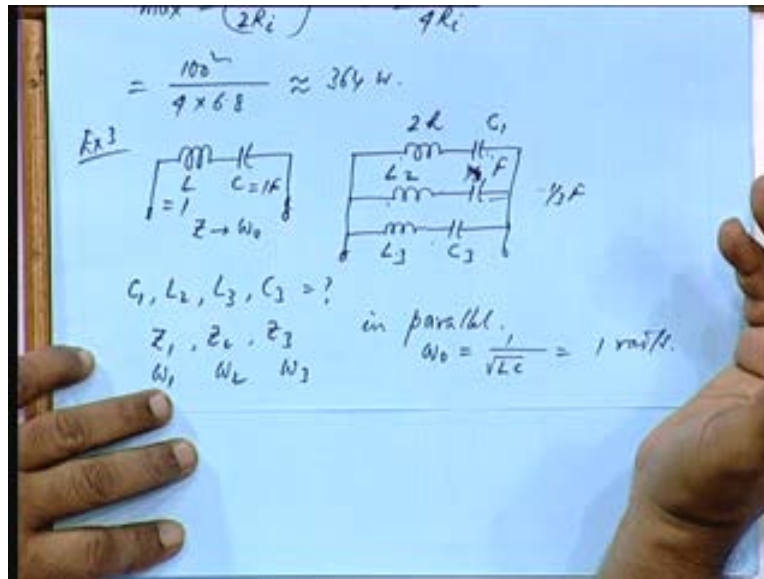 max = (2Ri) 4Ri
= 100² / 4 × 6.8 ≈ 364 W.
Ex 3
2h C₁
L C = 1F
= 1
Z → ω₀
L₂ F
-⅓F
L₃ C₃
C₁, L₂, L₃, C₃ = ?
Z₁, Z₂, Z₃ in parallel.
ω₁ ω₂ ω₃
ω₀ = 1/√LC = 1 rad/s.